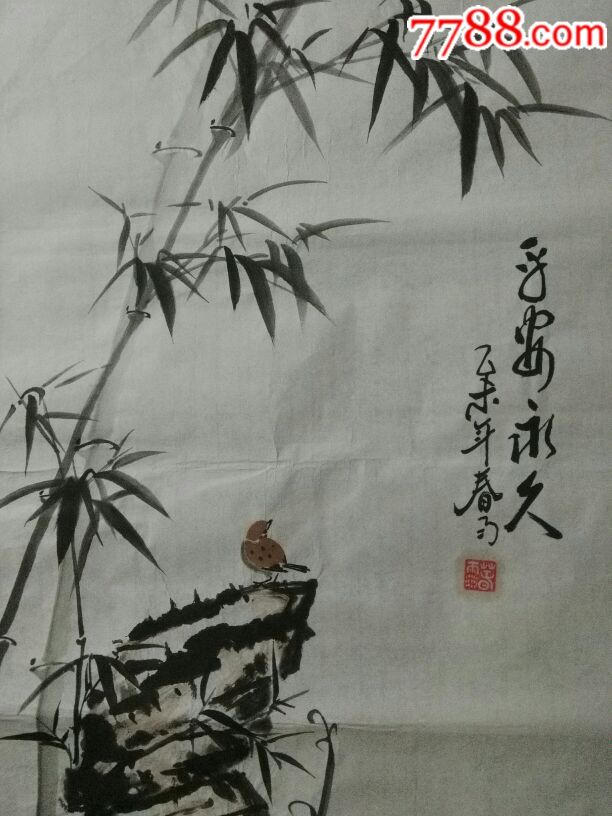 7788.com
平安永久
乙未年春雨